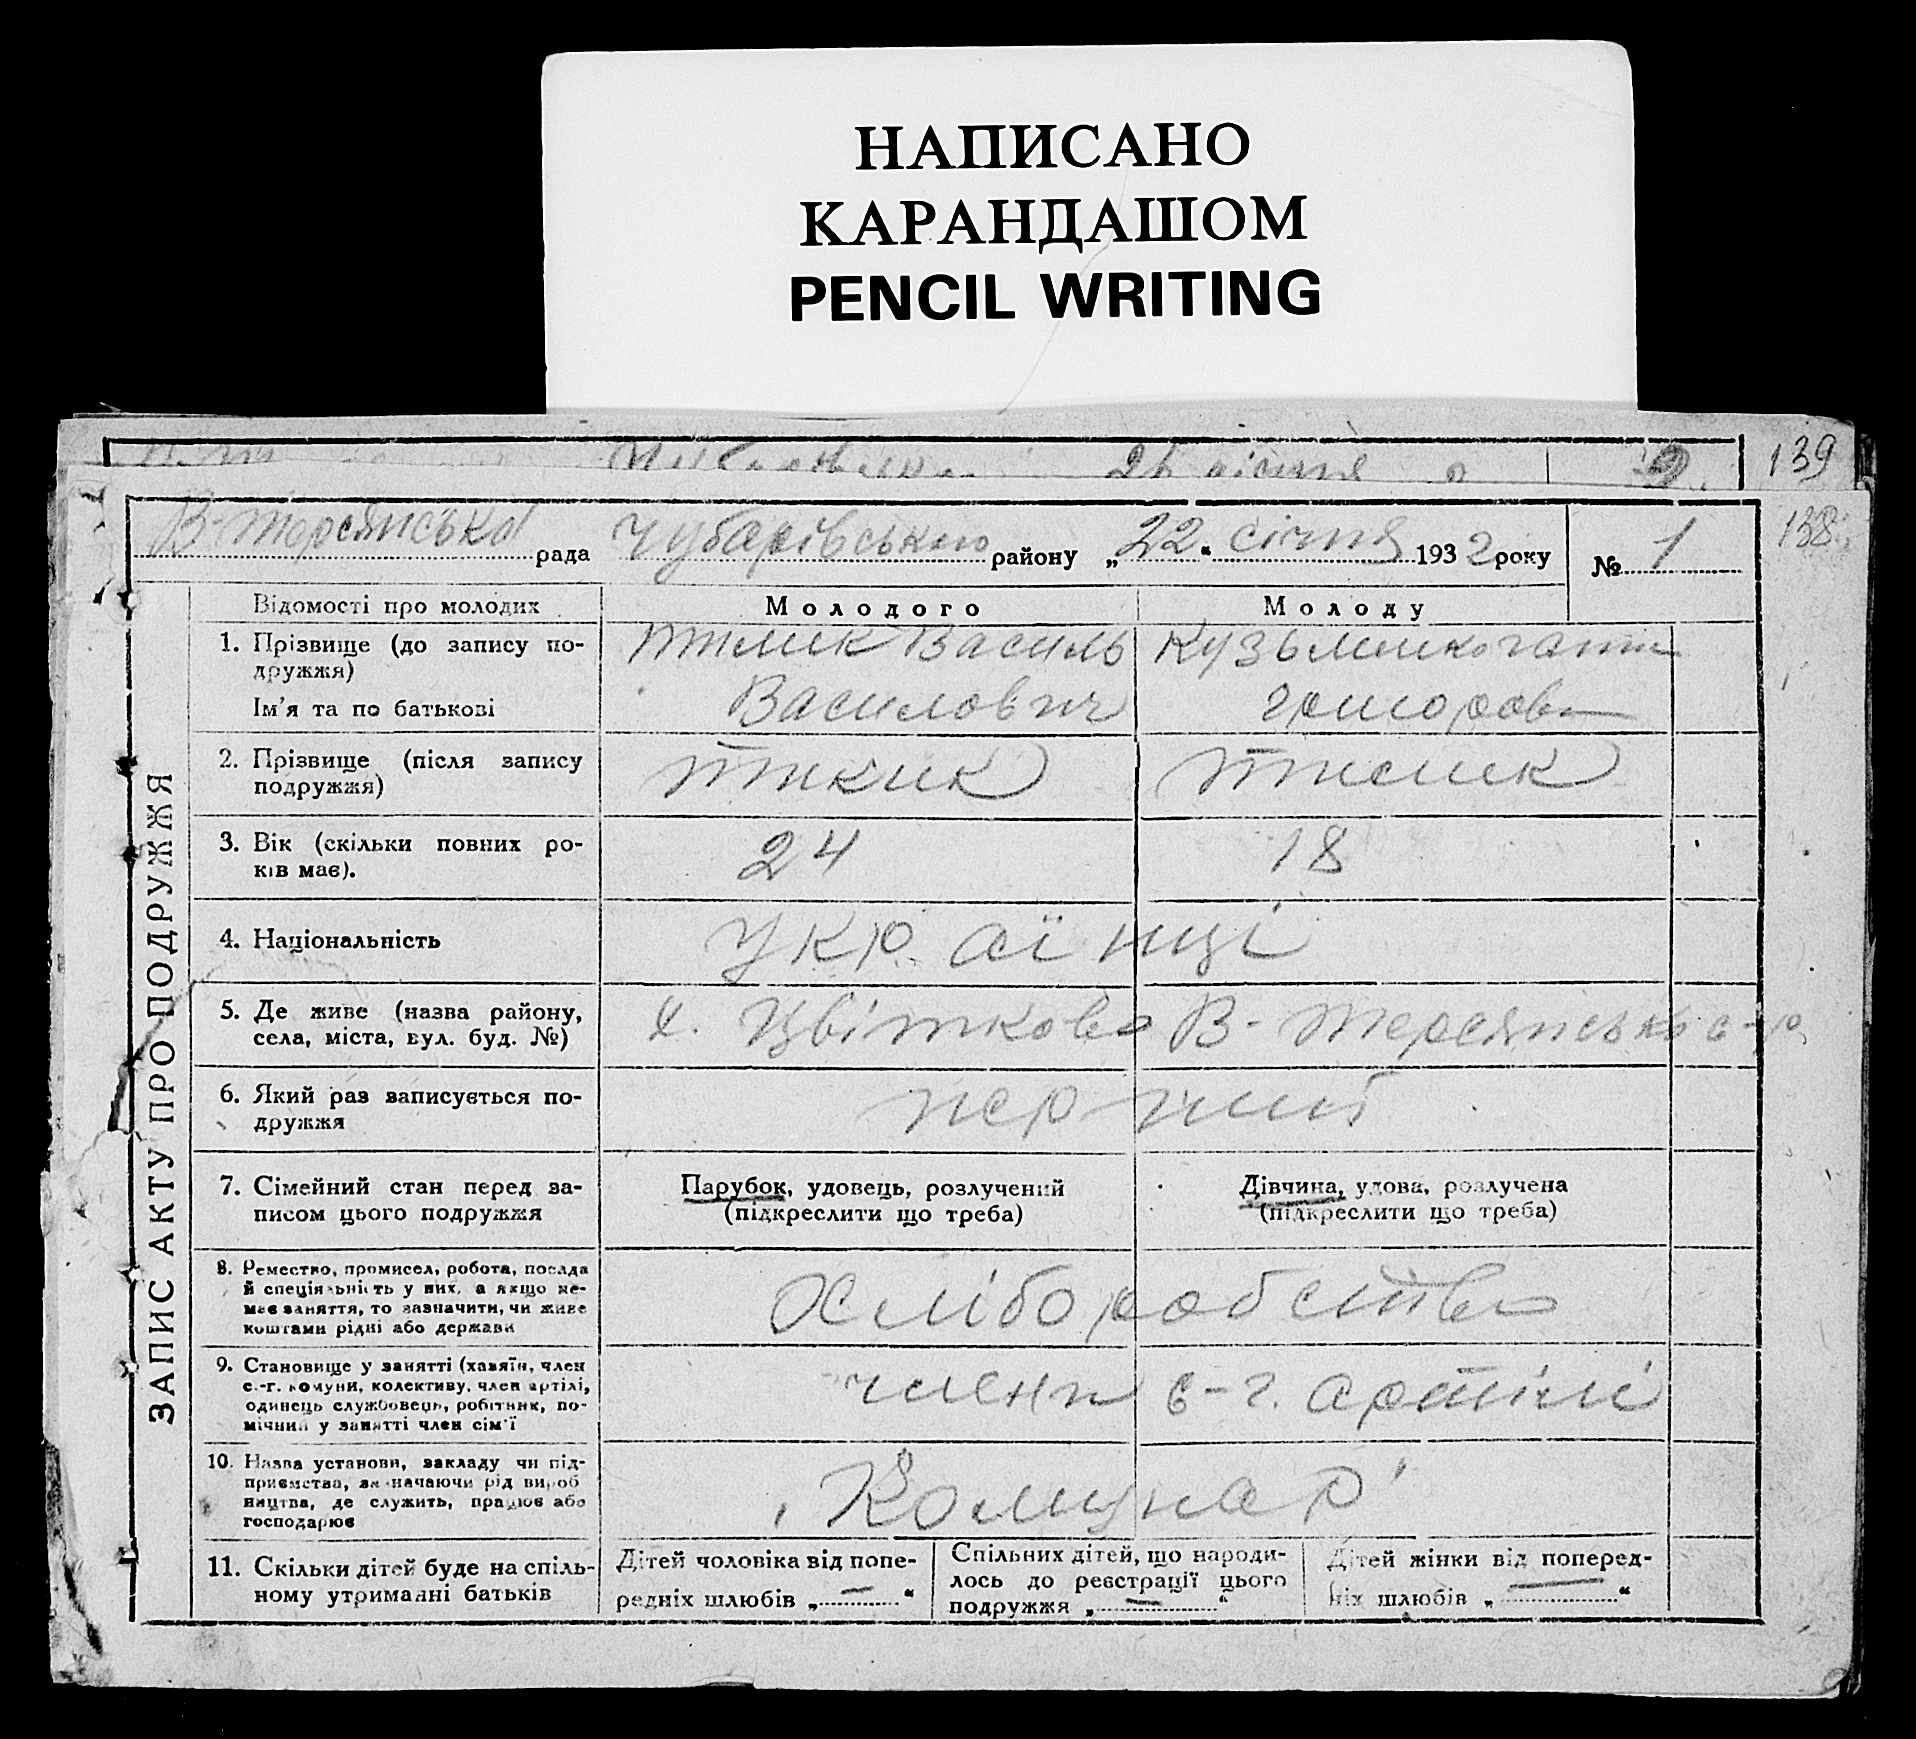 НАПИСАНО
КАРАНДАШОМ
PENCIL WRITING
26 січня 2
139
138
В-Терсянська рада Чубарівського району „22“ січня 1932 року № 1
ЗАПИС АКТУ ПРО ПОДРУЖЖЯ
Відомості про молодих Молодого Молоду
1. Прізвище (до запису по-
дружжя)
Ім'я та по батькові
Василь
Василович
2. Прізвище (після запису
подружжя)
3. Вік (скільки повних ро-
ків має).
24 18
4. Національність
Українці
5. Де живе (назва району,
села, міста, вул. буд. №)
х. Цвіткове В-Терсянської с-р
6. Який раз записується по-
дружжя
перший
7. Сімейний стан перед за-
писом цього подружжя
Парубок, удовець, розлучений
(підкреслити що треба)
Дівчина, удова, розлучена
(підкреслити що треба)
8. Ремество, промисел, робота, посада
й спеціяльність у них, а якщо не-
має заняття, то зазначити, чи живе
коштами рідні або держави
Хліборобство
9. Становище у занятті (хазяїн, член
с.-г. комуни, колективу, член артілі,
одинець службовець, робітник, по-
мічний у занятті член сім'ї
члени с-г. артілі
10. Назва установи, закладу чи під-
приємства, зазначаючи рід вироб
ництва, де служить, працює або
господарює
„Комунар"
11. Скільки дітей буде на спіль-
ному утриманні батьків
Дітей чоловіка від попе-
редніх шлюбів „ — “
Спільних дітей, що народи-
лось до реєстрації цього
подружжя „ — “
Дітей жінки від поперед-
ніх шлюбів „ — “